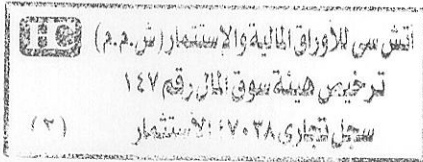 اتش سي للأوراق المالية والإستثمار (ش.م.م) HC
ترخيص هيئة سوق المال رقم ١٤٧
سجل تجارى الاستثمار (٢)